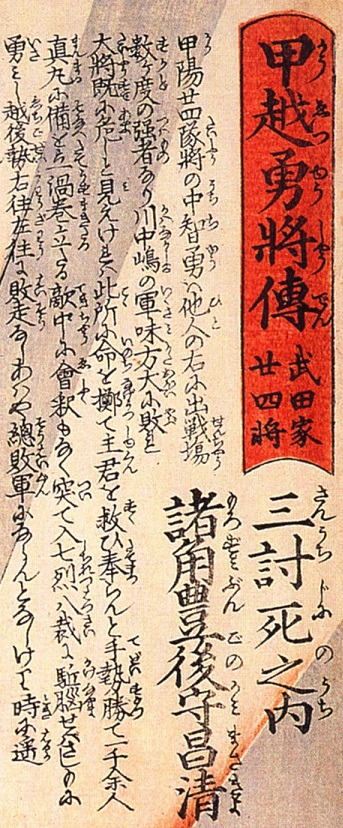 甲越勇將傳
武田家
廿四將
三討死之内
諸角豊後守昌清
甲陽廿四隊將の中智勇ハ他人の右に出戦場
数ヶ度の強者なり川中嶋の軍味方大に敗し
大將既に危しと見えけれバ此所に命を擲て主君を救ひ奉らんと手勢勝て一千余人
真丸に備を立渦巻立たる敵中に會釈もなく突て入七烈八裁に
勇をし越後勢右往左往に敗走なすあハや總敗軍にならんとなしける時に